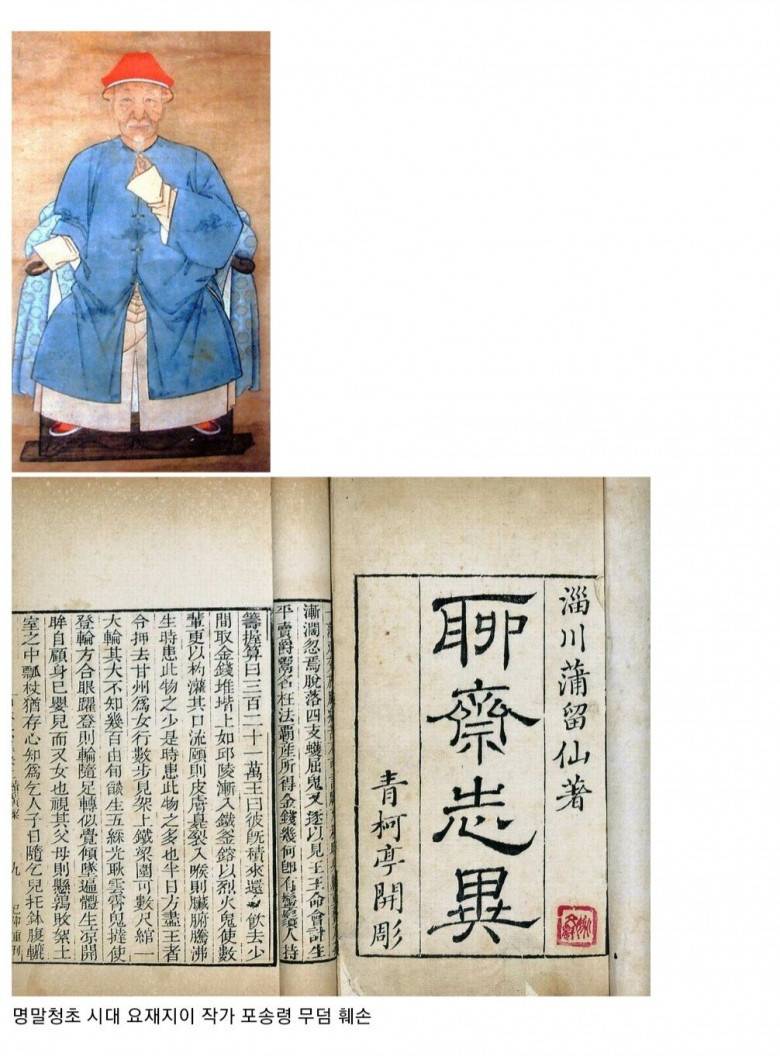 淄川蒲留仙著
聊齋志異
青柯亭開彫
漸濶忽焉脫落四支蠖屈鬼又逐以見王王命會計生
平賣爵鬻名枉法霸產所得金錢幾何即有鬡鬚人持
籌握算曰三百二十一萬王曰彼既積來還令飲去少
間取金錢堆堦上如邱陵漸入鐵釜鎔以烈火鬼使數
輩更以杓灌其口流頤則皮膚臭裂入喉則臟腑騰沸
生時患此物之少是時患此物之多也半日方盡王者
令押去甘州爲女行數步見架上鐵梁圍可數尺綰一
大輪其大不知幾百由旬燄生五綵光耿雲霄鬼撻使
登輪方合眼躍登則輪隨足轉似覺傾墜遍體生凉開
眸自顧身巳嬰兒而又女也視其父母則懸鶉敗絮土
室之中瓢杖猶存心知爲乞人子日隨乞兒托鉢腹轆
九
명말청초 시대 요재지이 작가 포송령 무덤 훼손